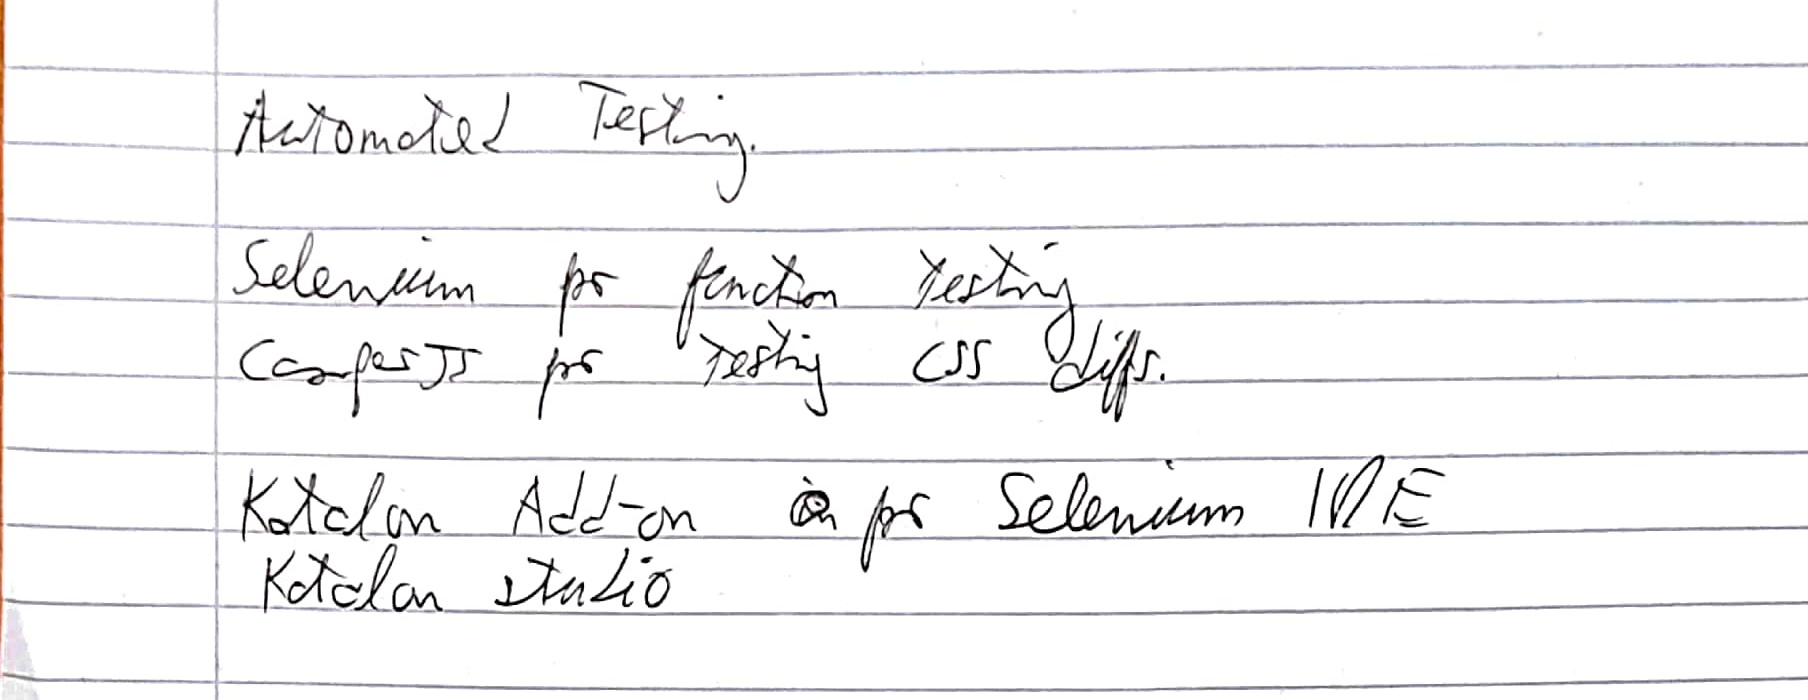 Automated Testing.
Selenium for function testing
CasperJS for testing CSS diffs.
Katalon Add-on for Selenium IDE
Katalon studio